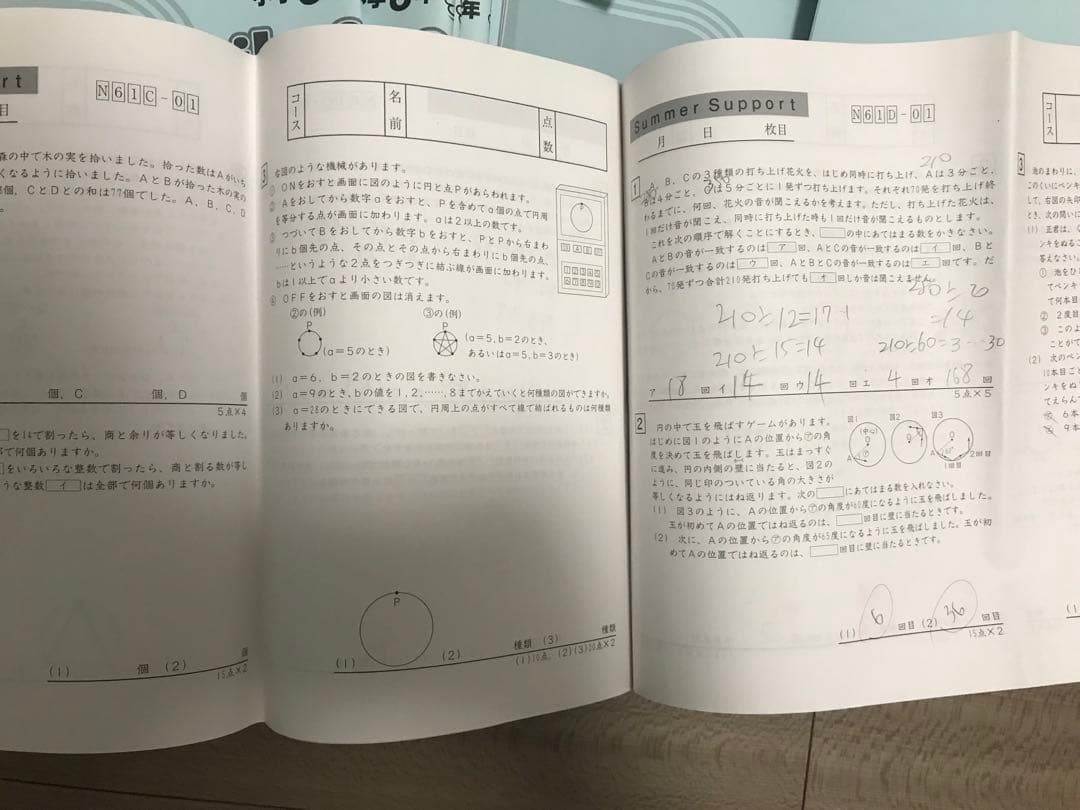 年
rt
N61C-01
目
森の中で木の実を拾いました。拾った数はAがいち
くなるように拾いました。AとBが拾った木の実の
個, CとDとの和は77個でした。A, B, C, D
。
個, C 個, D 個
5点×4
を14で割ったら, 商と余りが等しくなりました。
で何個ありますか。
をいろいろな整数で割ったら, 商と割る数が等し
うな整数 イ は全部で何個ありますか。
(1) 個 (2) 個
15点×2
コース 名前 点数
3 右図のような機械があります。
① ONをおすと画面に図のように円と点Pがあらわれます。
② Aをおしてから数字aをおすと, Pを含めてa個の点で円周
を等分する点が画面に加わります。aは2以上の数です。
③ つづいてBをおしてから数字bをおすと, PとPから右まわ
りにb個先の点, その点とその点から右まわりにb個先の点,
……というような2点をつぎつぎに結ぶ線が画面に加わります。
bは1以上でaより小さい数です。
④ OFFをおすと画面の図は消えます。
②の(例) ③の(例)
P P
(a=5のとき) (a=5, b=2のとき,
あるいはa=5, b=3のとき)
(1) a=6, b=2のときの図を書きなさい。
(2) a=9のとき, bの値を1, 2, ……, 8までかえていくと何種類の図ができますか。
(3) a=28のときにできる図で, 円周上の点がすべて線で結ばれるものは何種類
ありますか。
P
(1) (2) 種類 (3) 種類
(1)10点, (2)(3)20点×2
Summer Support
N61D-01
月 日 枚目
210
1 A, B, Cの3種類の打ち上げ花火を, はじめ同時に打ち上げ, Aは3分ごと,
Bは4分ごと, Cは5分ごとに1発ずつ打ち上げます。それぞれ70発を打ち上げ終
わるまでに, 何回, 花火の音が聞こえるかを考えます。ただし, 打ち上げた花火は,
1回だけ音が聞こえ, 同時に打ち上げた時も1回だけ音が聞こえるものとします。
これを次の順序で解くことにするとき, の中にあてはまる数をかきなさい。
AとBの音が一致するのは ア 回, AとCの音が一致するのは イ 回, Bと
Cの音が一致するのは ウ 回, AとBとCの音が一致するのは エ 回です。だ
から, 70発ずつ合計210発打ち上げても オ 回しか音は聞こえません。
280÷20
=14
210÷12=17+1
210÷15=14
210÷60=3…30
ア 18 回 イ 14 回 ウ 14 回 エ 4 回 オ 168 回
5点×5
2 円の中で玉を飛ばすゲームがあります。
はじめに図1のようにAの位置から㋐の角
度を決めて玉を飛ばします。玉はまっすぐ
に進み, 円の内側の壁に当たると, 図2の
ように, 同じ印のついている角の大きさが
等しくなるようにはね返ります。次の にあてはまる数を入れなさい。
図1 図2 図3
(中心)
A
1回目
2回目
(1) 図3のように, Aの位置から㋐の角度が60度になるように玉を飛ばしました。
玉が初めてAの位置ではね返るのは, 回目に壁に当たるときです。
(2) 次に, Aの位置から㋐の角度が65度になるように玉を飛ばしました。玉が初
めてAの位置ではね返るのは, 回目に壁に当たるときです。
(1) 6 回目 (2) 36 回目
15点×2
コース
3 池のまわりに,
(1) 正君は,
答えなさい。
① 池を
② 2度目
③ このよ
ことがで
(2) 次のペン